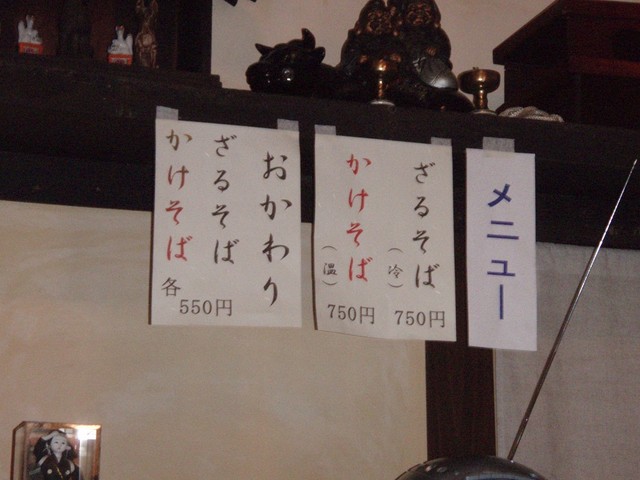 メニュー
ざるそば
(冷)
750円
かけそば
(温)
750円
おかわり
ざるそば
かけそば
各
550円